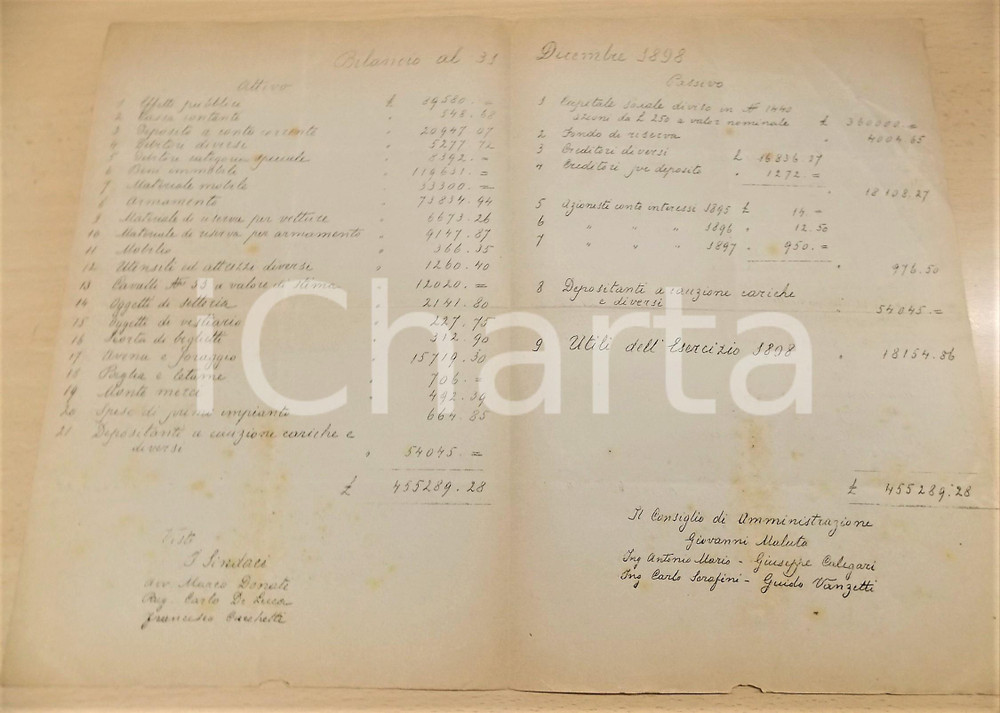 Bilancio al 31 Dicembre 1898
Attivo
1 Effetti pubblici £ 59580. =
2 Cassa contante " 548.28
3 Depositi a conto corrente " 20947.07
4 Debitori diversi " 5277.72
5 Debitori categoria speciale " 8592. =
6 Beni immobili " 119631. =
7 Materiale mobile " 53300. =
8 Armamento " 73834.94
9 Materiale di riserva per vetture " 6673.26
10 Materiale di riserva per armamento " 9147.87
11 Mobilio " 366.35
12 Utensili ed attrezzi diversi " 1260.40
13 Cavalli N° 53 a valore di stima " 12020. =
14 Oggetti di selleria " 2141.80
15 Oggetti di vestiario " 227.75
16 Scorta di biglietti " 312.90
17 Avena e foraggio " 15719.50
18 Paglia e letame " 706. =
19 Monte merci " 492.59
20 Spese di primo impianto " 664.85
21 Depositanti a cauzione cariche e
diversi " 54045. =
£ 455289.28
Visto
I Sindaci
Avv. Marco Donati
Rag. Carlo De
Francesco
Passivo
1 Capitale sociale diviso in N° 1440
azioni da £ 250 a valor nominale £ 360000. =
2 Fondo di riserva " 4004.65
3 Creditori diversi £ 16836.27
4 Creditori per deposito " 1272. =
" 18108.27
5 Azionisti conto interessi 1895 £ 14 =
6 " " " 1896 " 12.50
7 " " " 1897 " 950. =
" 976.50
8 Depositanti a cauzione cariche
e diversi " 54045. =
9 Utili dell'Esercizio 1898 " 18154.86
£ 455289.28
Il Consiglio di Amministrazione
Giovanni Maluta
Ing Antonio Mario - Giuseppe Calegari
Ing Carlo Serafini - Guido Vanzetti
iCharta